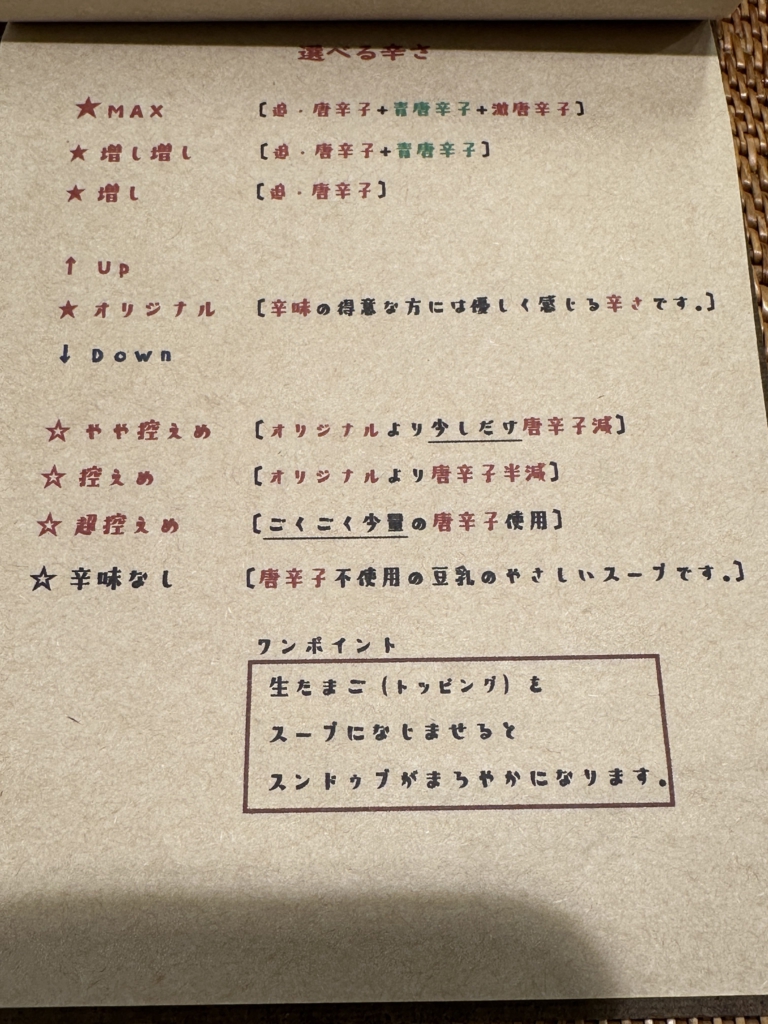 選べる辛さ
★MAX [追・唐辛子+青唐辛子+激唐辛子]
★増し増し [追・唐辛子+青唐辛子]
★増し [追・唐辛子]
↑ Up
★オリジナル [辛味の得意な方には優しく感じる辛さです。]
↓ Down
☆やや控えめ [オリジナルより少しだけ唐辛子減]
☆控えめ [オリジナルより唐辛子半減]
☆超控えめ [ごくごく少量の唐辛子使用]
☆辛味なし [唐辛子不使用の豆乳のやさしいスープです。]
ワンポイント
生たまご(トッピング)を
スープになじませると
スンドゥブがまろやかになります。